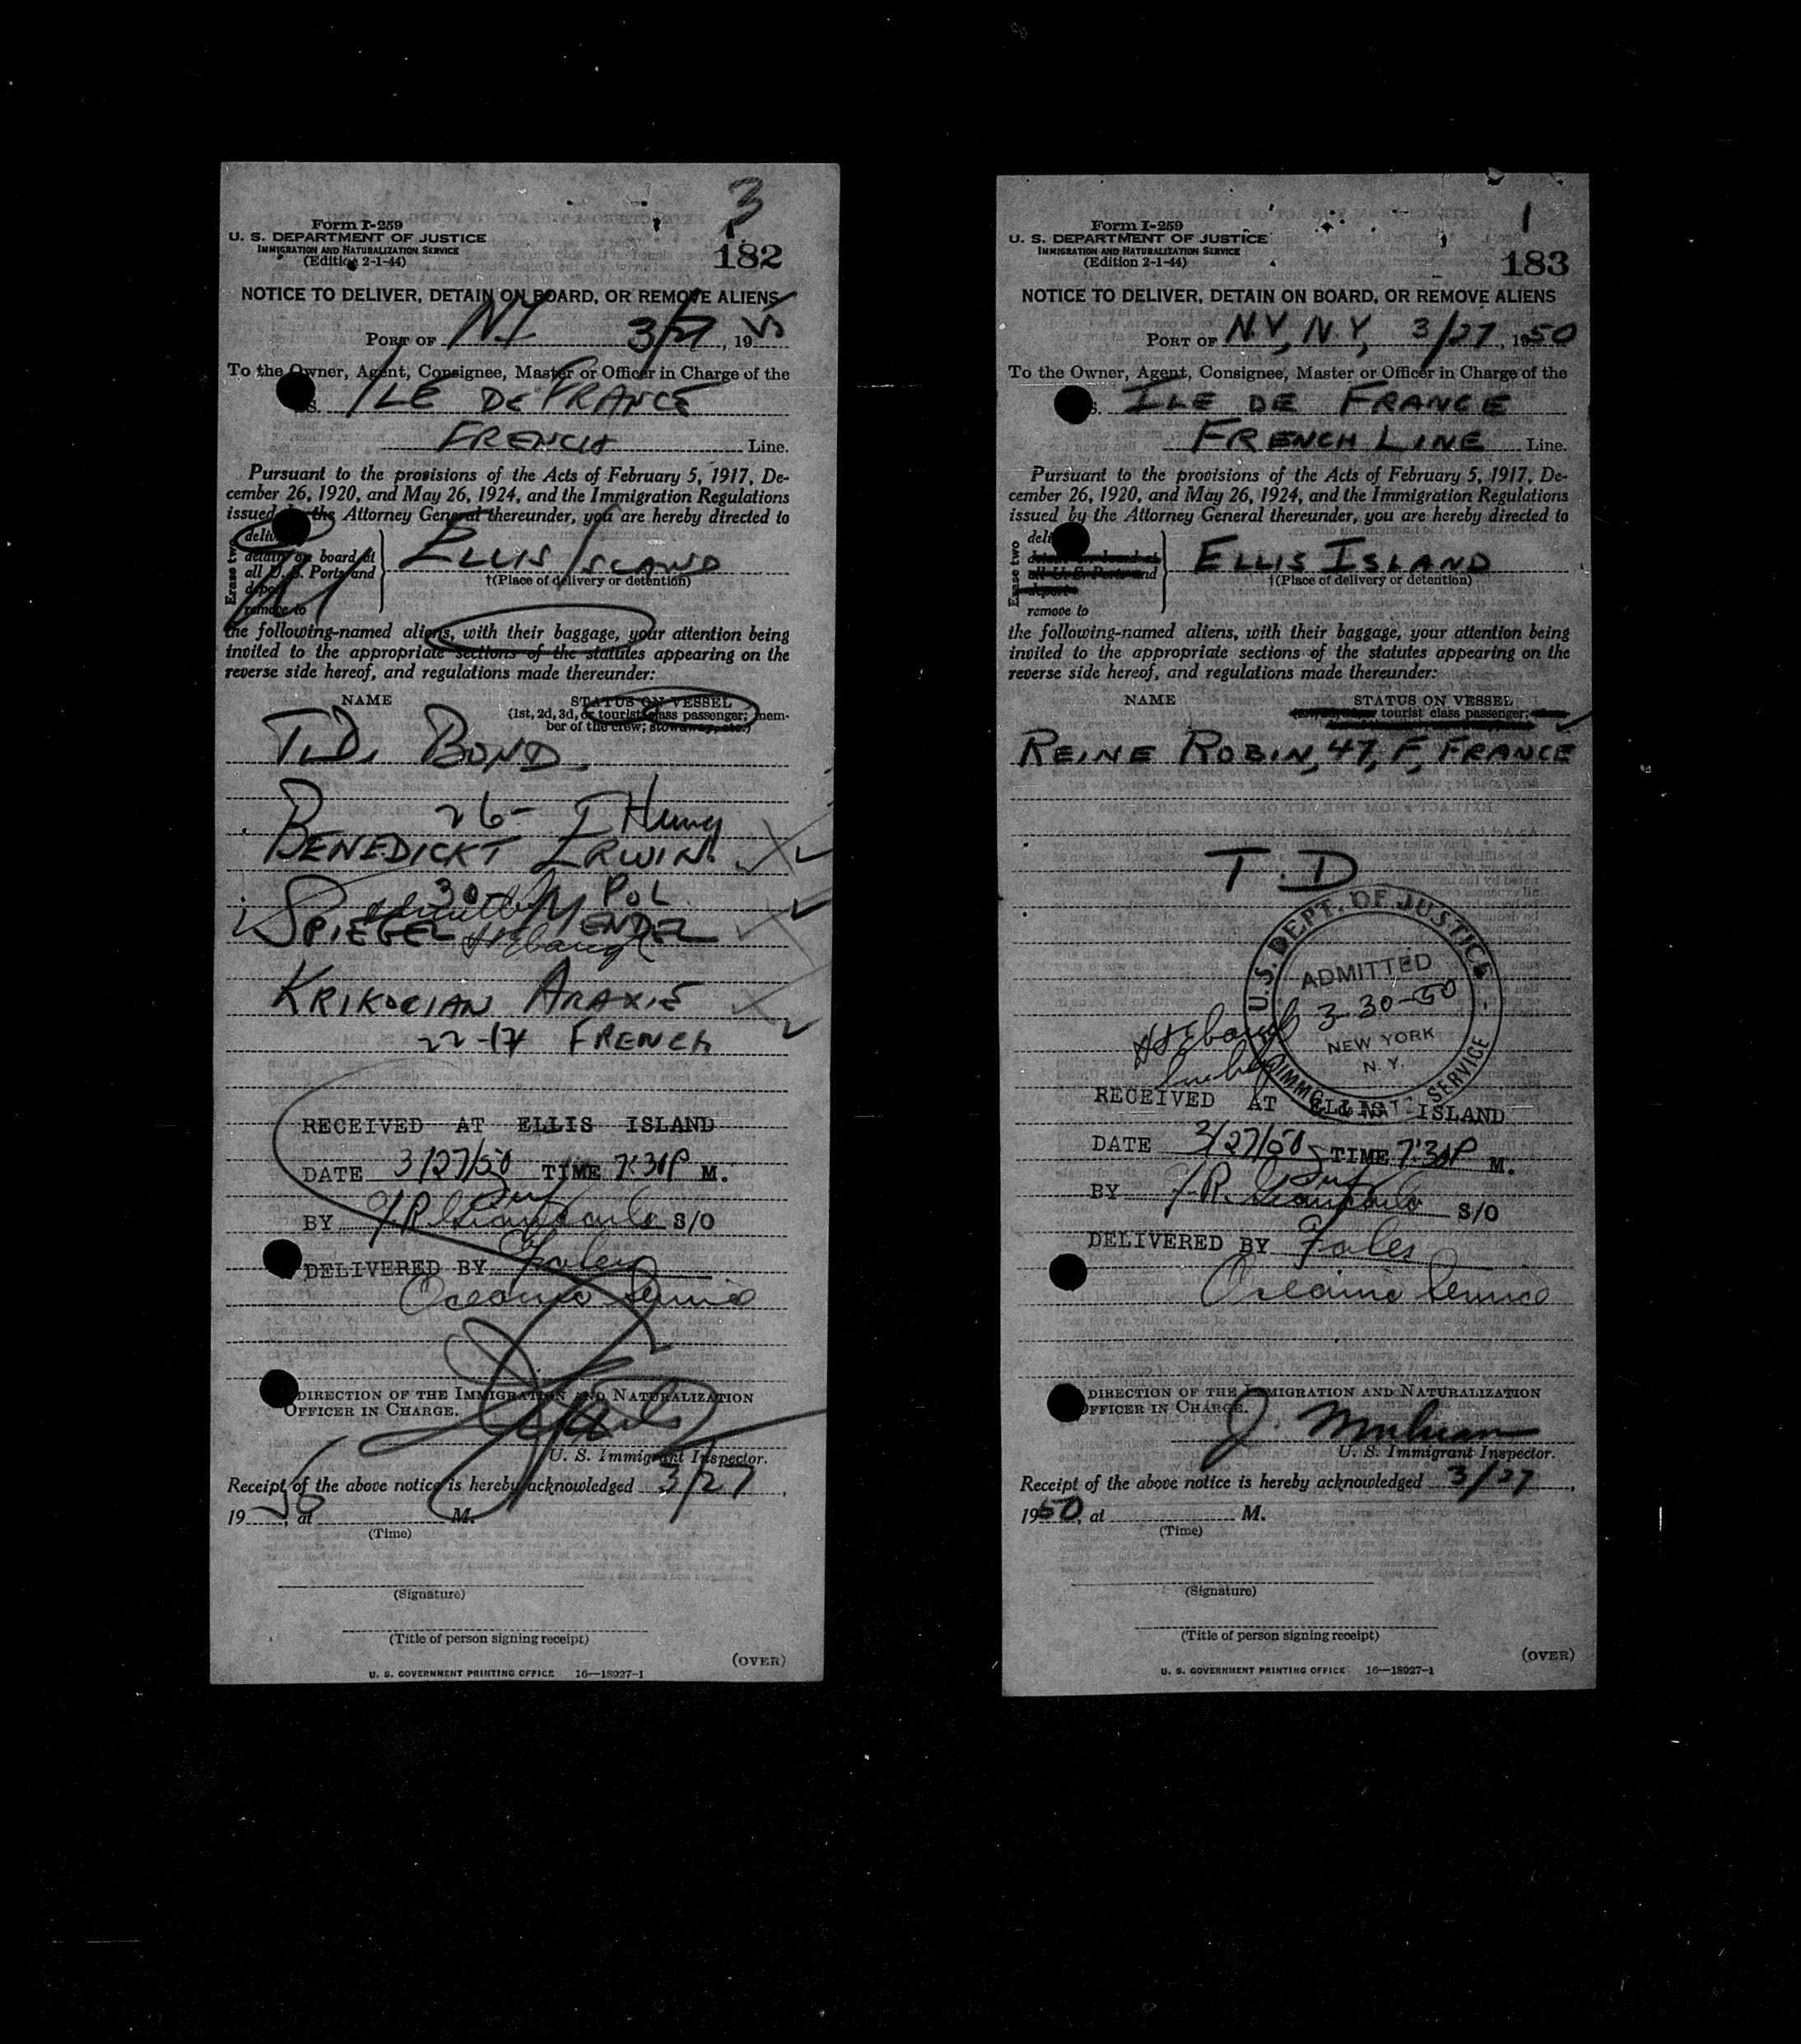 3
182
Form I-259
U. S. DEPARTMENT OF JUSTICE
IMMIGRATION AND NATURALIZATION SERVICE
(Edition 2-1-44)
NOTICE TO DELIVER, DETAIN ON BOARD, OR REMOVE ALIENS
PORT OF NY 3/27, 1950
To the Owner, Agent, Consignee, Master or Officer in Charge of the
S. ILE DE FRANCE
FRENCH Line.
Pursuant to the provisions of the Acts of February 5, 1917, De-
cember 26, 1920, and May 26, 1924, and the Immigration Regulations
issued by the Attorney General thereunder, you are hereby directed to
Erase two
deliv
detain on board at
all U. S. Ports and
depor
remove to
ELLIS ISLAND
†(Place of delivery or detention)
the following-named aliens, with their baggage, your attention being
invited to the appropriate sections of the statutes appearing on the
reverse side hereof, and regulations made thereunder:
NAME STATUS ON VESSEL
(1st, 2d, 3d, or tourist class passenger; mem-
ber of the crew; stowaway, etc.)
T.D. BOND.
26-
BENEDICKT IRWIN
30-M POL
SPIEGEL MENDEL
KRIKOCIAN ARAXIE
22-17 FRENCH
RECEIVED AT ELLIS ISLAND
DATE 3/27/50 TIME 7:30P M.
BY S/O
DELIVERED BY Fales
Oceanic Service
DIRECTION OF THE IMMIGRATION AND NATURALIZATION
OFFICER IN CHARGE.
U. S. Immigrant Inspector.
Receipt of the above notice is hereby acknowledged 3/27,
1950, at M.
(Time)
(Signature)
(Title of person signing receipt)
(OVER)
U. S. GOVERNMENT PRINTING OFFICE 16—18927-1
1
183
Form I-259
U. S. DEPARTMENT OF JUSTICE
IMMIGRATION AND NATURALIZATION SERVICE
(Edition 2-1-44)
NOTICE TO DELIVER, DETAIN ON BOARD, OR REMOVE ALIENS
PORT OF N.Y, N.Y, 3/27, 1950
To the Owner, Agent, Consignee, Master or Officer in Charge of the
S. ILE DE FRANCE
FRENCH LINE Line.
Pursuant to the provisions of the Acts of February 5, 1917, De-
cember 26, 1920, and May 26, 1924, and the Immigration Regulations
issued by the Attorney General thereunder, you are hereby directed to
Erase two
deli
detain on board at
all U. S. Ports and
deport
remove to
ELLIS ISLAND
†(Place of delivery or detention)
the following-named aliens, with their baggage, your attention being
invited to the appropriate sections of the statutes appearing on the
reverse side hereof, and regulations made thereunder:
NAME STATUS ON VESSEL
tourist class passenger;
REINE ROBIN, 47, F, FRANCE
T.D
U.S. DEPT. OF JUSTICE
ADMITTED
3-30-50
NEW YORK
N. Y.
IMMIG. & NAT. SERVICE
RECEIVED AT ELLIS ISLAND
DATE 3/27/50 TIME 7:30P M.
BY S/O
DELIVERED BY Fales
Oceanic Service
DIRECTION OF THE IMMIGRATION AND NATURALIZATION
OFFICER IN CHARGE.
J.
U. S. Immigrant Inspector.
Receipt of the above notice is hereby acknowledged 3/27,
1950, at M.
(Time)
(Signature)
(Title of person signing receipt)
(OVER)
U. S. GOVERNMENT PRINTING OFFICE 16—18927-1